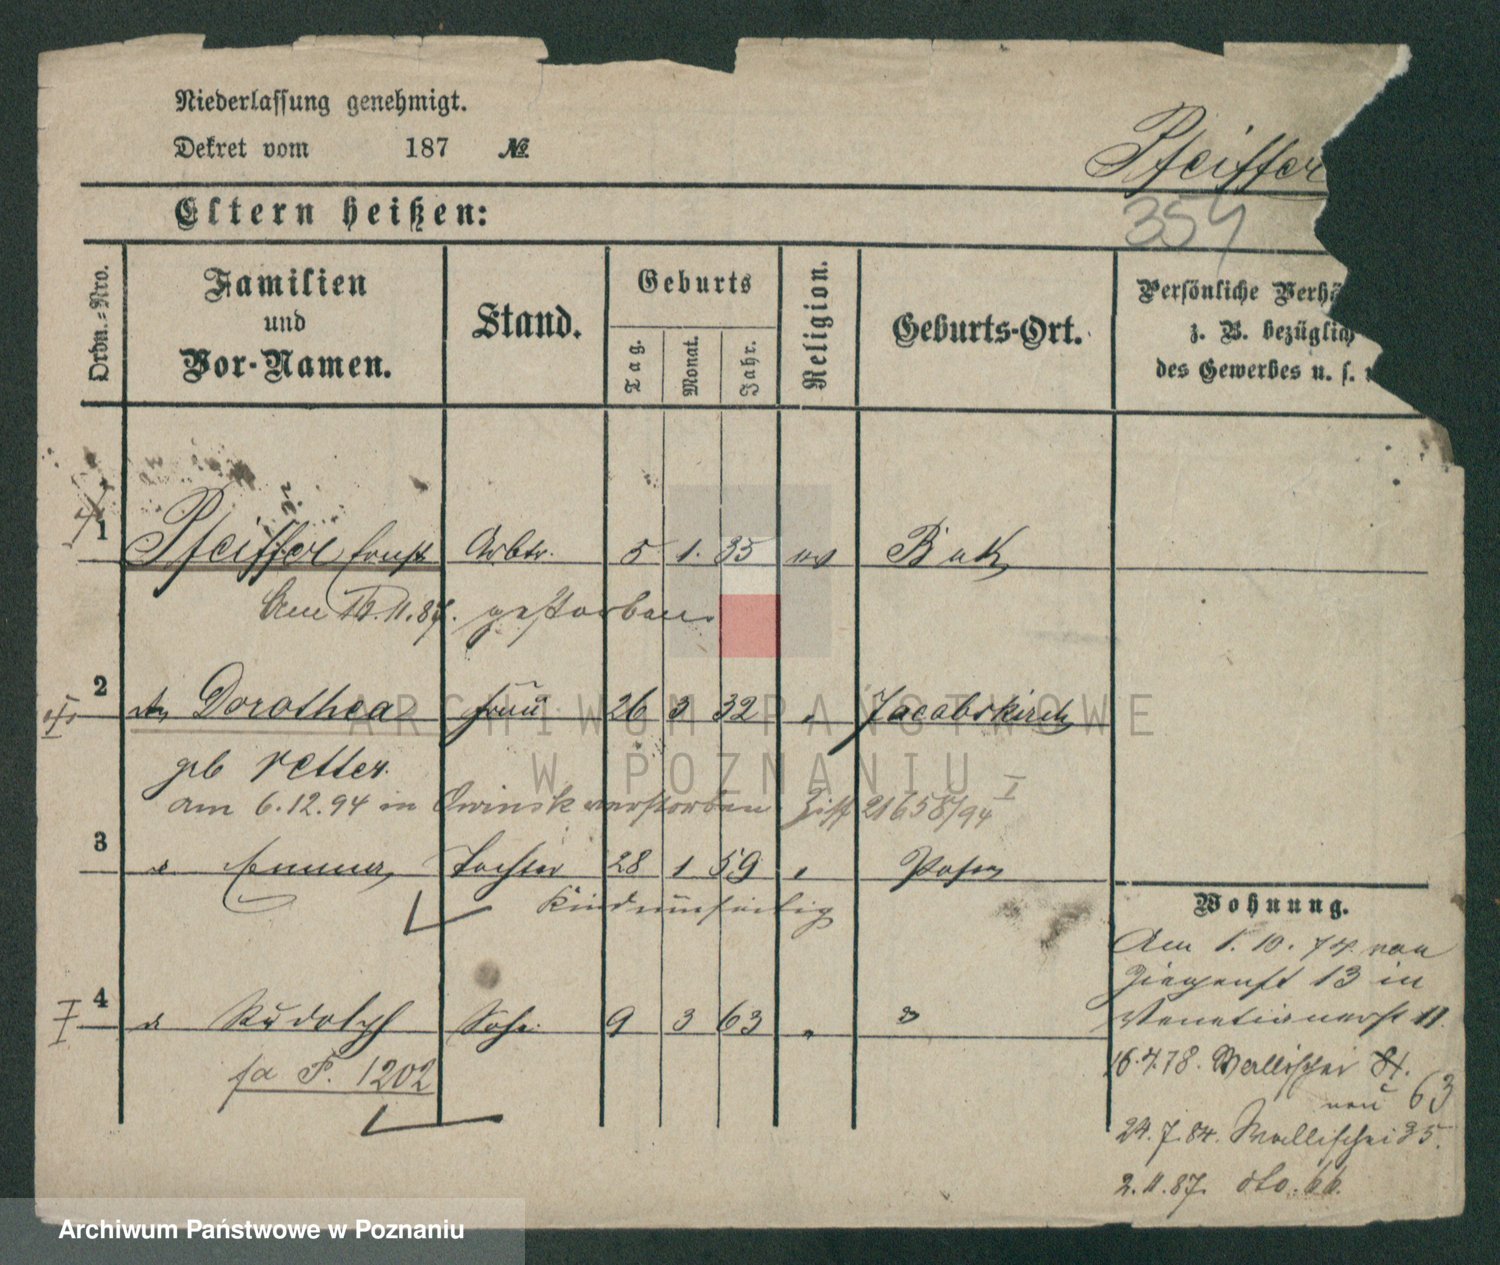 Niederlassung genehmigt.
Dekret vom 187 №
Pfeiffer
Eltern heißen:
354
Ordn.-Nro.
Familien und Vor-Namen.
Stand.
Geburts
Tag.
Monat.
Jahr.
Religion.
Geburts-Ort.
Persönliche Verhä
z. B. bezüglich
des Gewerbes u. s.
1 Pfeiffer Ernst Arbtr. 5 1. 35 ev Buk
Am 11.87. gestorben.
2 Dorothea Frau 26 3 32 " Jacobskirch
geb retter.
am 6.12.94 in Owinsk verstorben Ziff 21658/94 I
3 Emma, Tochter 28 1 59 " Posen
Kindunfertig
4 Rudolph Sohn 9 3 63 "
fa P. 1202
Wohnung.
Am 1. 10. 74. von
Ziegenst 13 in
Venetianerst 11.
16.4.78. Wallischei
neu 63
24.7.84. Wallischei 35.
2.11.87. dto. 66.
ARCHIWUM PAŃSTWOWE
W POZNANIU
Archiwum Państwowe w Poznaniu